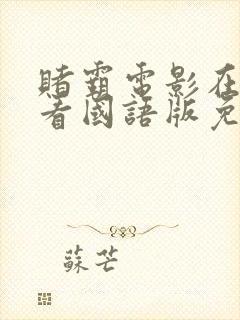 賭霸電影在
看國語版免
蘇芒